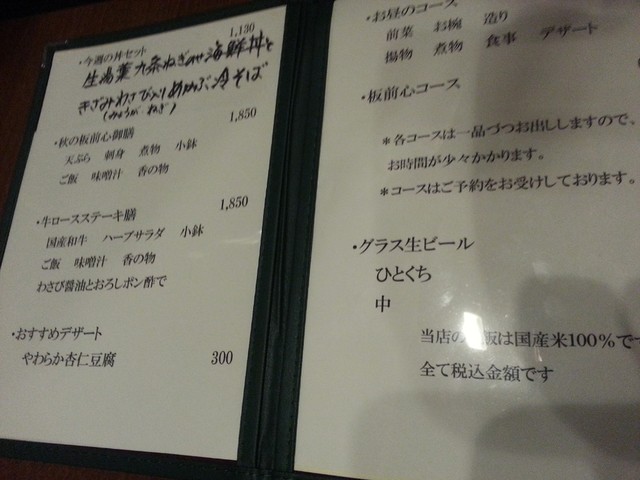 ・今週の丼セット 1,130
生湯葉九条ねぎのせ海鮮丼と
きざみわさび入りめかぶ冷そば
(みょうが ねぎ)
・秋の板前心御膳 1,850
天ぷら 刺身 煮物 小鉢
ご飯 味噌汁 香の物
・牛ロースステーキ膳 1,850
国産和牛 ハーブサラダ 小鉢
ご飯 味噌汁 香の物
わさび醤油とおろしポン酢で
・おすすめデザート
やわらか杏仁豆腐 300
・お昼のコース
前菜 お椀 造り
揚物 煮物 食事 デザート
・板前心コース
*各コースは一品づつお出ししますので、
お時間が少々かかります。
*コースはご予約をお受けしております。
・グラス生ビール
ひとくち
中
当店の 飯は国産米100%で
全て税込金額です